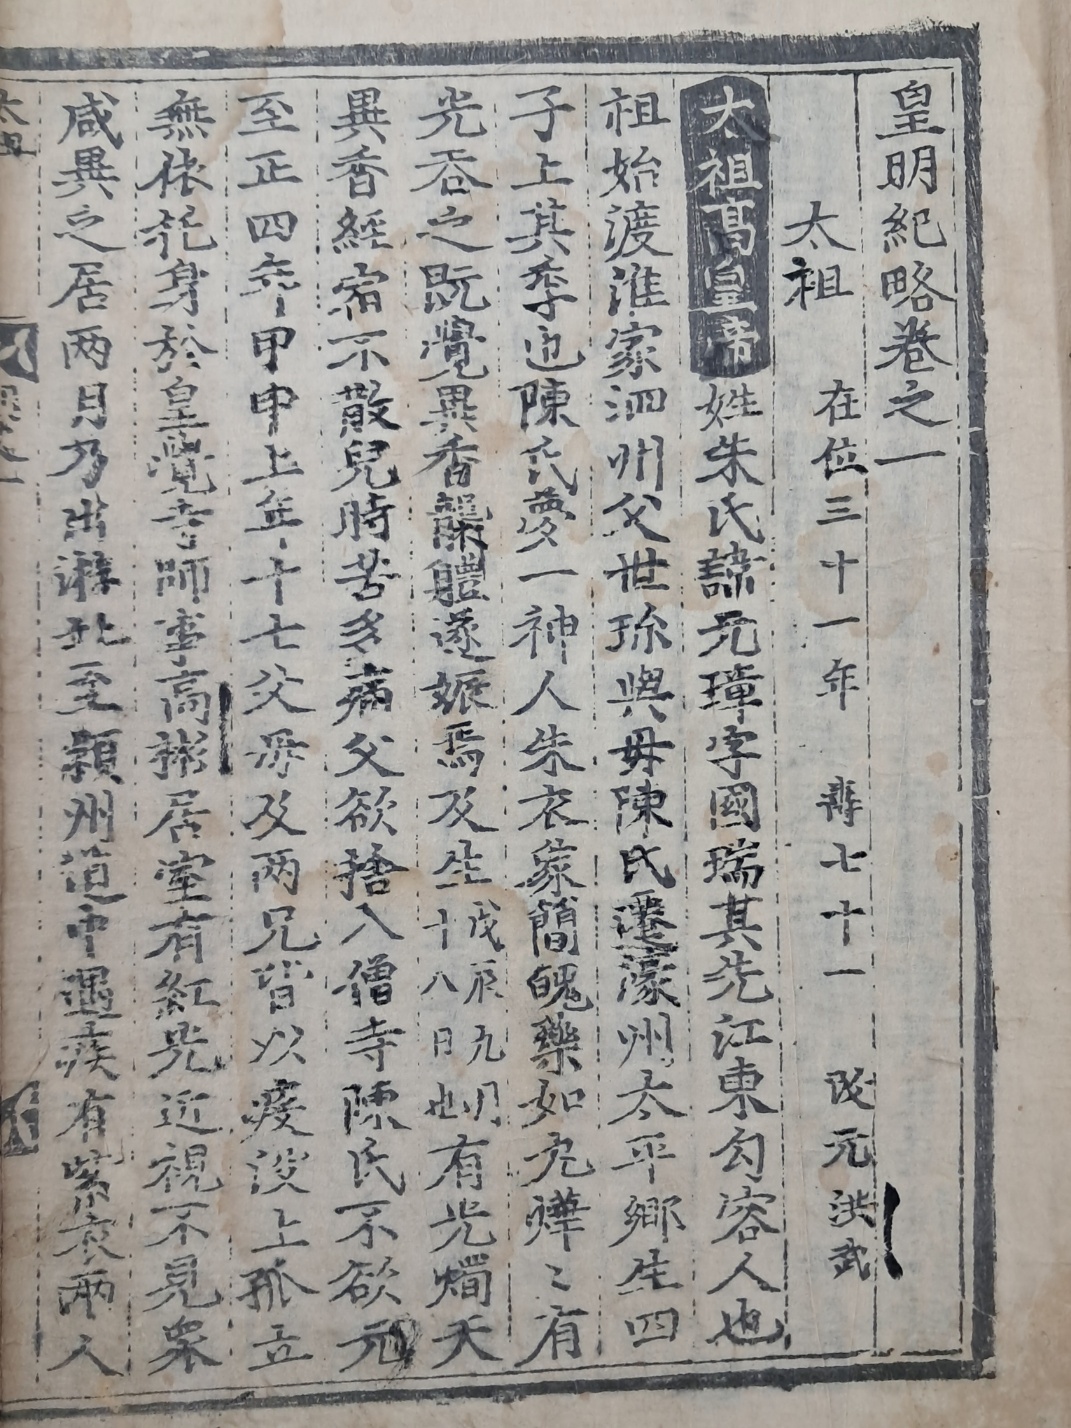 皇明紀略卷之一
太祖 在位三十一年 壽七十一 改元洪武
太祖高皇帝姓朱氏諱元璋字國瑞其先江東勾容人也
祖始渡淮家泗州父世珎與毋陳氏遷濠州太平鄉生四
子上其季也陳氏夢一神人朱衣象簡餽藥如丸燁〻有
光吞之既覺異香襲軆遂娠焉及生戊辰九月十八日也有光燭天
異香經宿不散兒時苦多病父欲捨入僧寺陳氏不欲元
至正四年甲申上年十七父毋及兩兄皆以疫沒上孤立
無依托身於皇覺寺師事高彬居室有紅光近視不見衆
咸異之居两月乃出游北至頴州道中遇疾有紫衣兩人